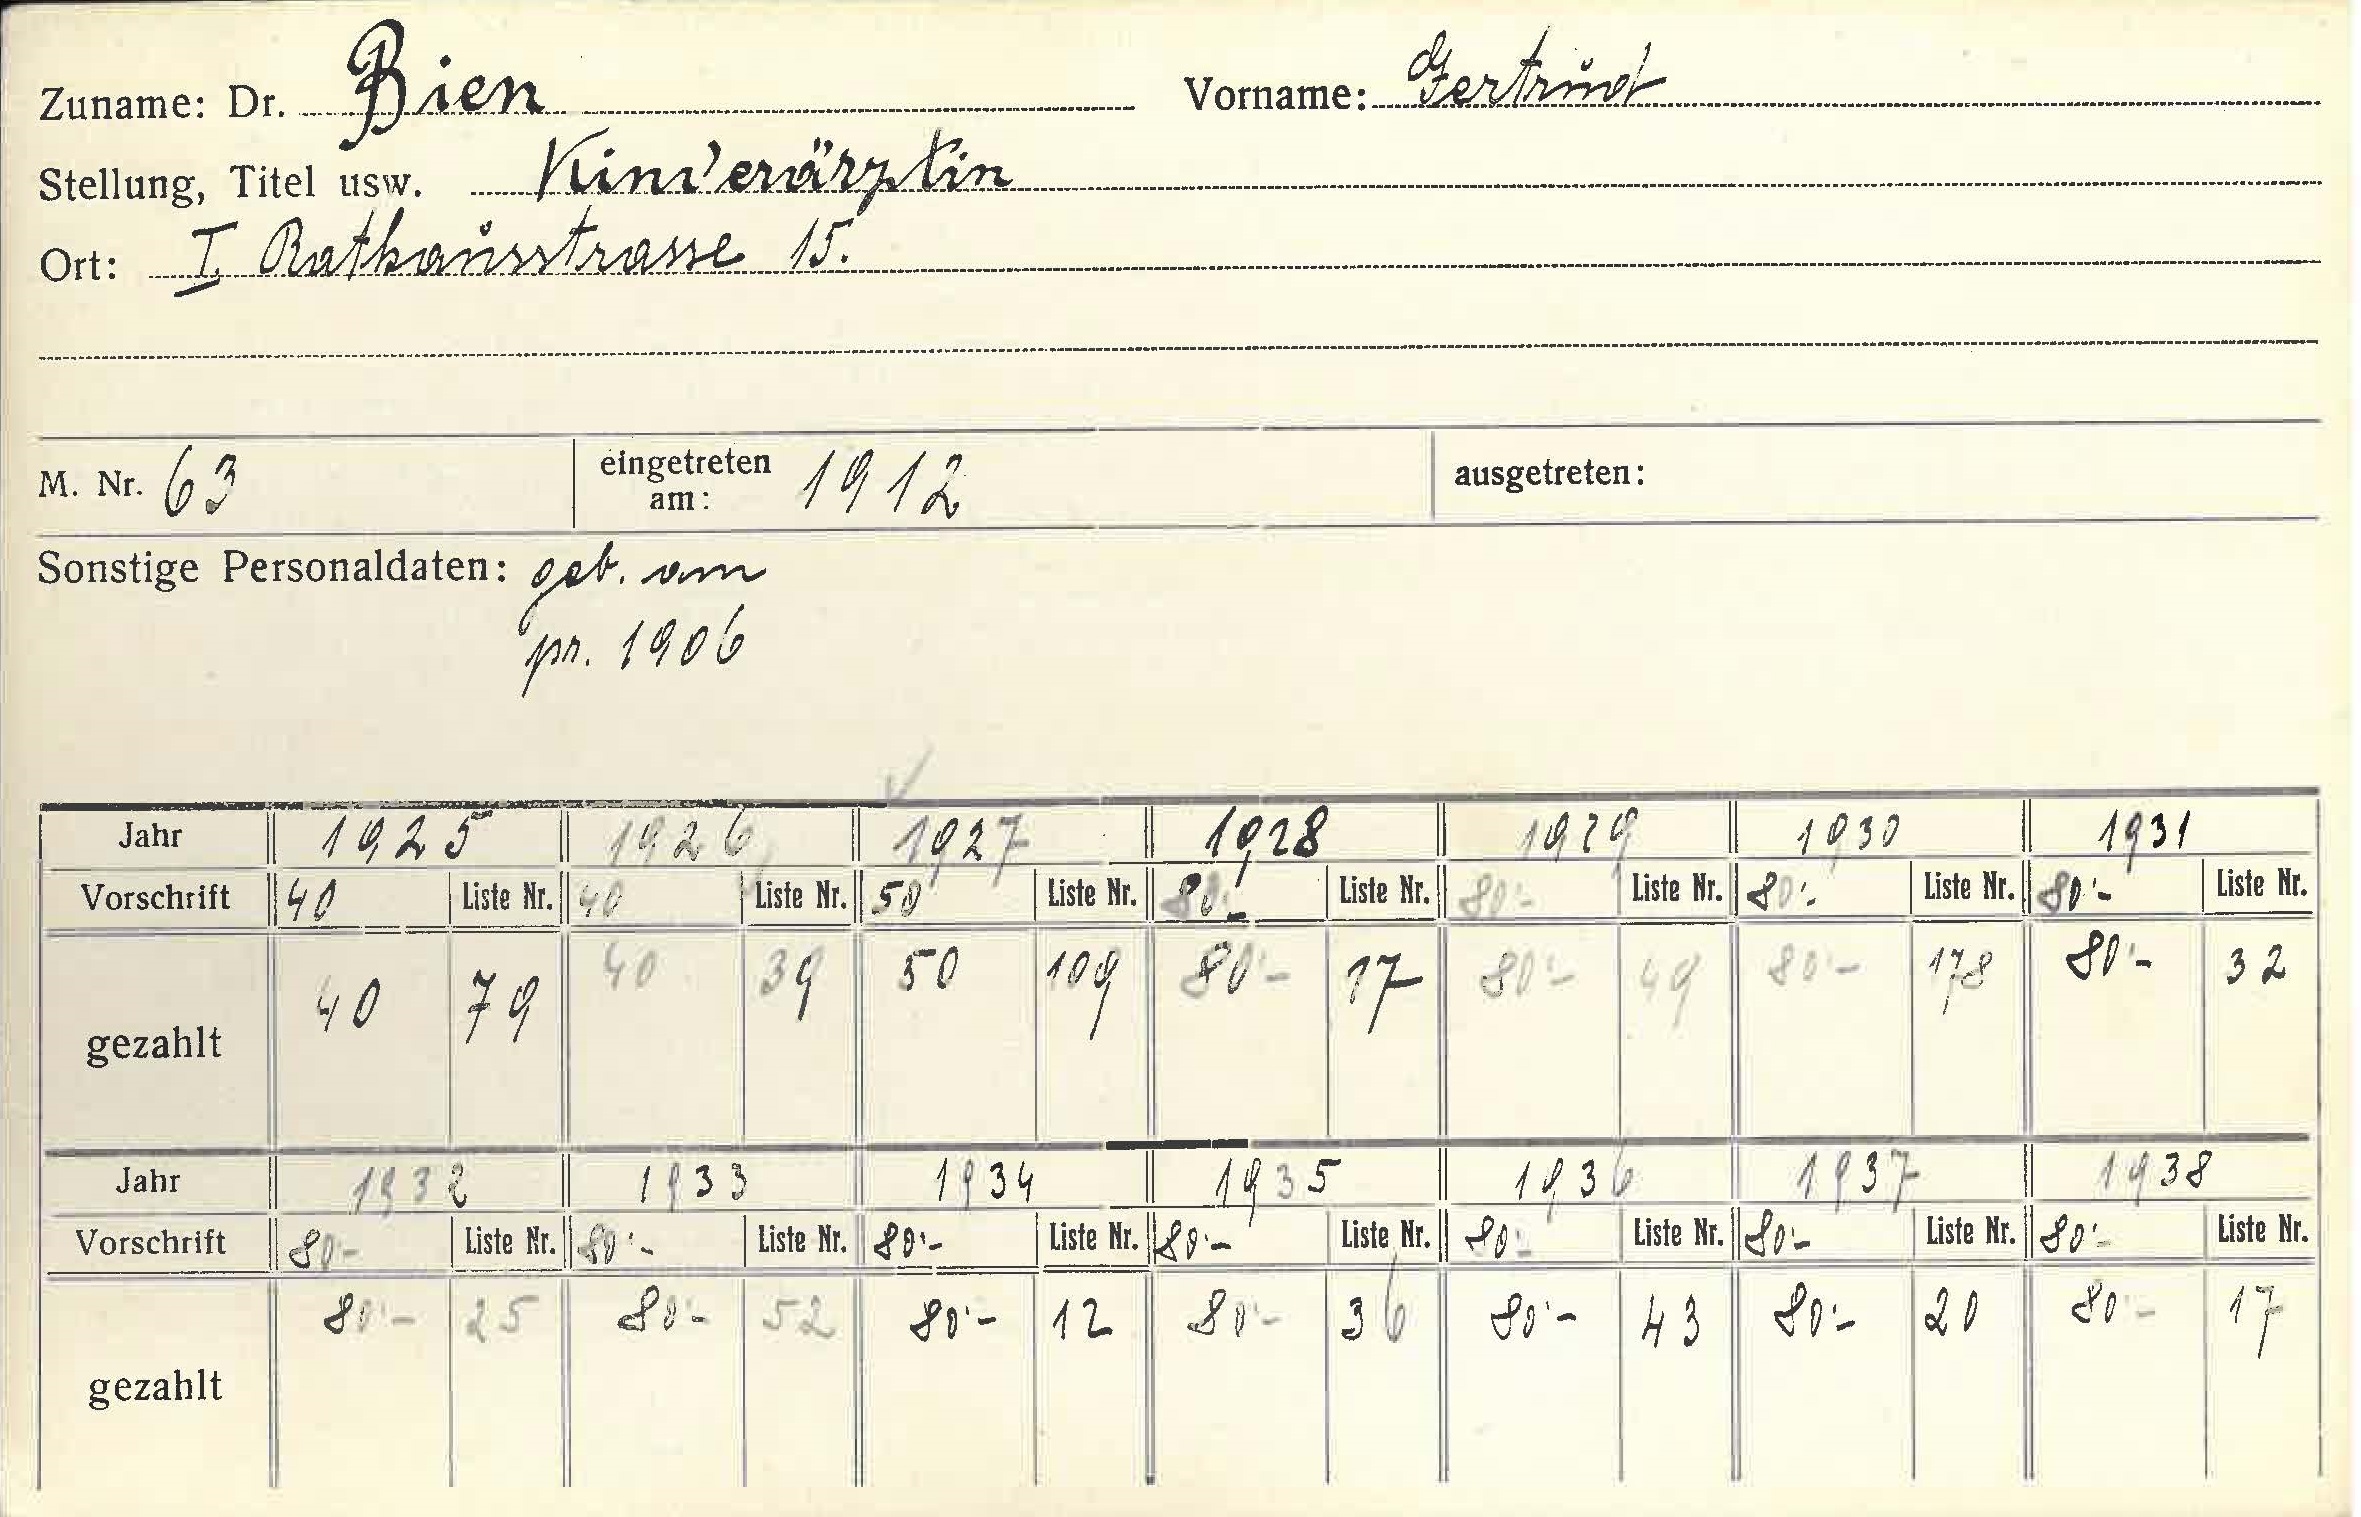 Zuname: Dr. Bien Vorname: Gertrud
Stellung, Titel usw. Kinderärztin
Ort: I Rathausstrasse 15.
M. Nr. 63 eingetreten am: 1912 ausgetreten:
Sonstige Personaldaten: geb. am
pr. 1906
Jahr 1925 1926 1927 1928 1929 1930 1931
Vorschrift 40 Liste Nr. 40 Liste Nr. 50 Liste Nr. 80.- Liste Nr. 80.- Liste Nr. 80.- Liste Nr. 80.- Liste Nr.
gezahlt 40 79 40 39 50 109 80.- 17 80.- 49 80.- 178 80.- 32
Jahr 1932 1933 1934 1935 1936 1937 1938
Vorschrift 80.- Liste Nr. 80.- Liste Nr. 80.- Liste Nr. 80.- Liste Nr. 80.- Liste Nr. 80.- Liste Nr. 80.- Liste Nr.
gezahlt 80.- 25 80.- 52 80.- 12 80.- 36 80.- 43 80.- 20 80.- 17